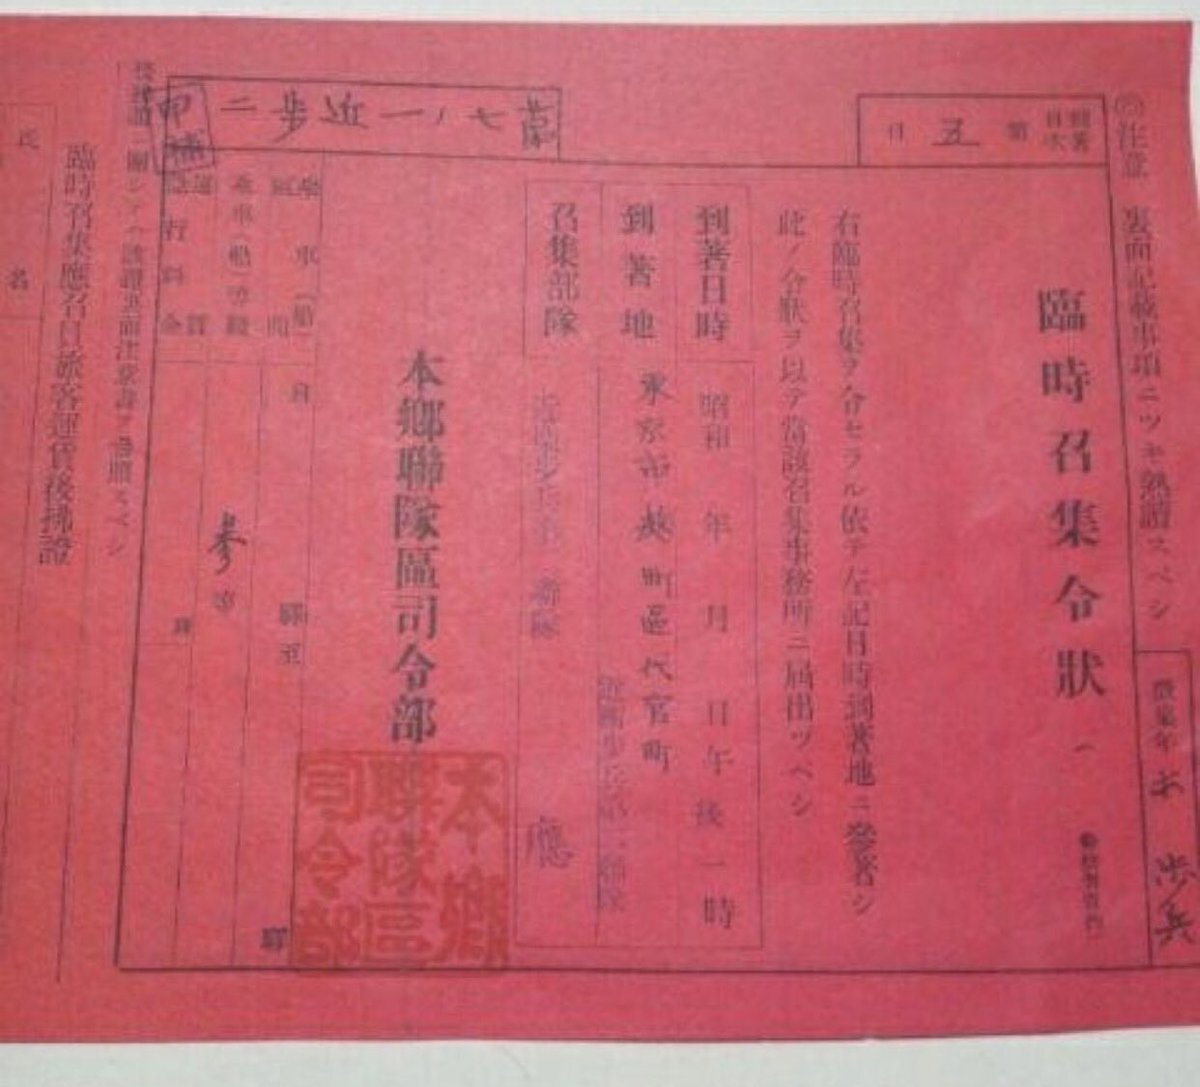 ◎注意 裏面記載事項ニツキ熟讀スベシ
歩兵
到著日次 第五日
臨時召集令狀
右臨時召集ヲ令セラル依テ左記日時到著地ニ參著シ
此ノ令狀ヲ以テ當該召集事務所ニ届出ツベシ
到著日時 昭和 年 月 日午後一時
到著地 東京市麹町區代官町
召集部隊
應
本鄉聯隊區司令部
本鄉
聯隊區
司令部
七ノ一近歩二
乘車(船)區間 自 驛至 驛
乘車(船)等級 參等
急行料金
臨時召集應召員旅客運賃後拂證
氏名